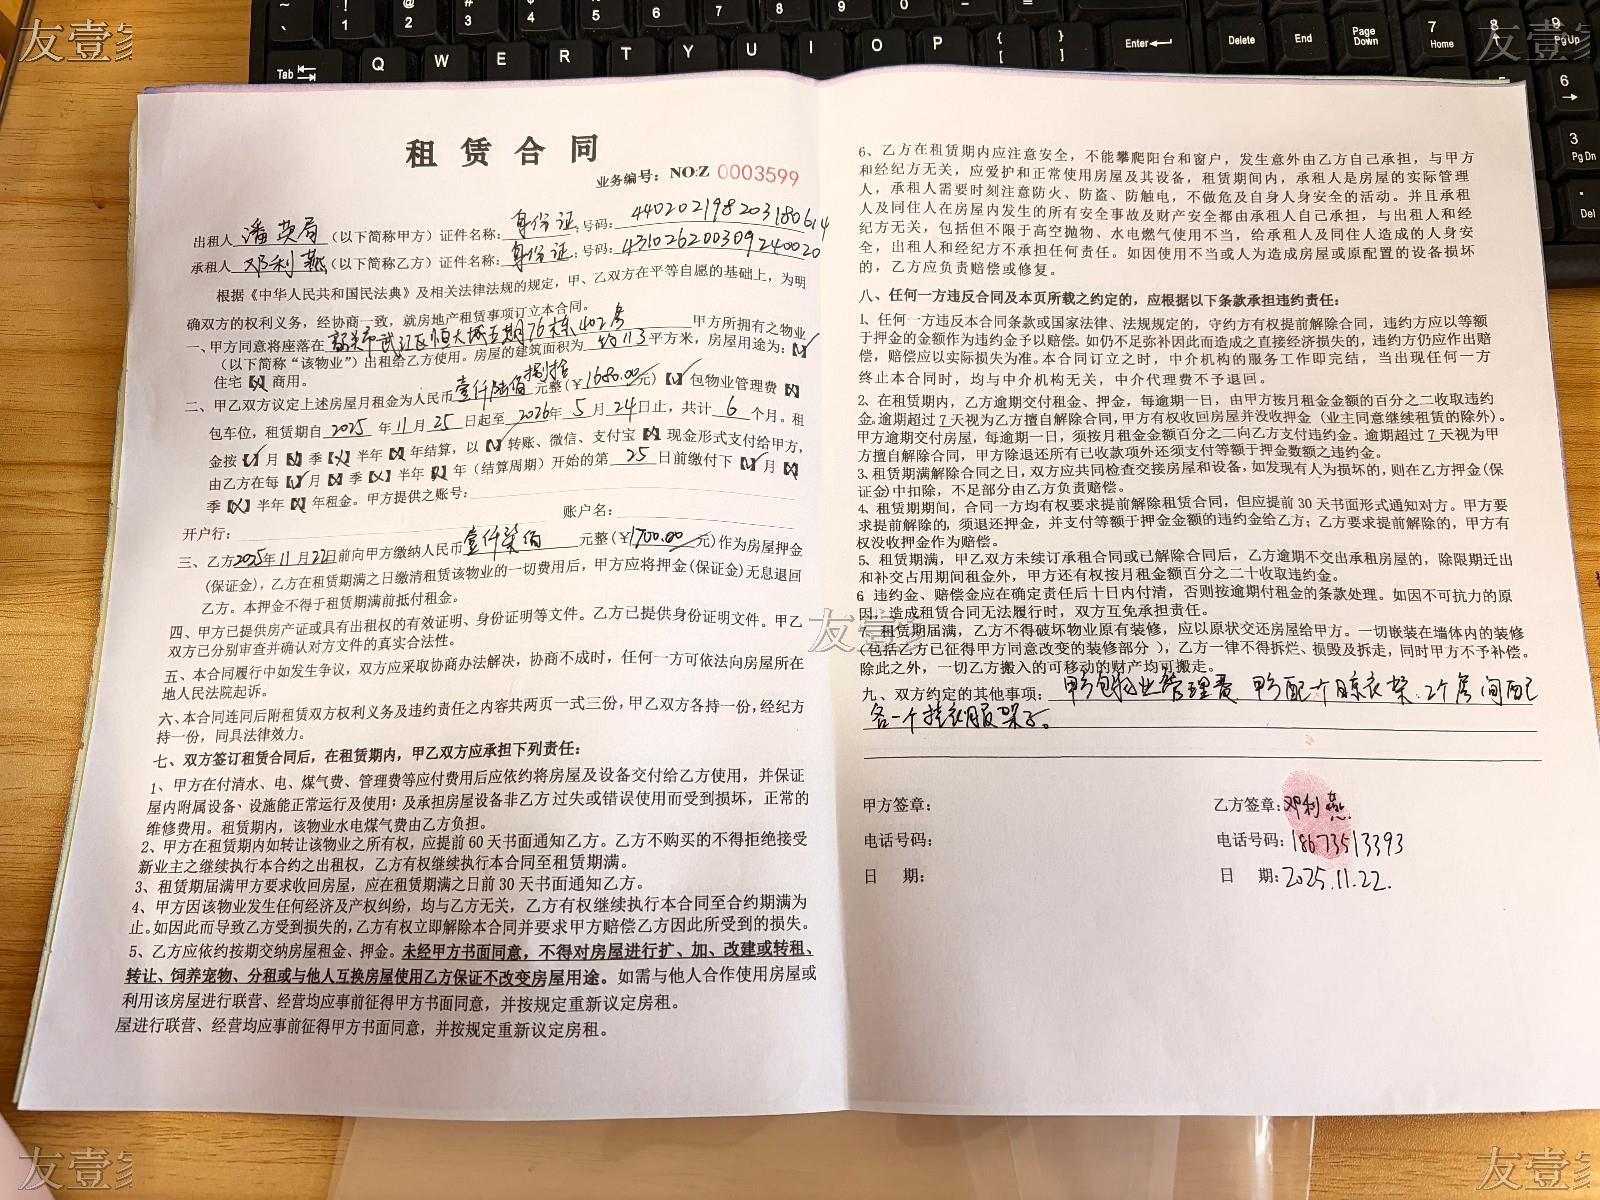 友壹家
租赁合同
业务编号：NO:Z 0003599
出租人 潘英局（以下简称甲方）证件名称：身份证；号码：440202198203180614
承租人 邓利燕（以下简称乙方）证件名称：身份证；号码：431026200309240020
根据《中华人民共和国民法典》及相关法律法规的规定，甲、乙双方在平等自愿的基础上，为明
确双方的权利义务，经协商一致，就房地产租赁事项订立本合同。
一、甲方同意将座落在 韶关市武江区恒大城五期76栋402房 甲方所拥有之物业
（以下简称“该物业”）出租给乙方使用。房屋的建筑面积为 约113 平方米，房屋用途为：【√】
住宅【×】商用。
二、甲乙双方议定上述房屋月租金为人民币 壹仟陆佰捌拾 元整(￥1680.00元)【√】包物业管理费【×】
包车位，租赁期自 2025 年 11 月 25 日起至 2026年 5 月 24日止，共计 6 个月。租
金按【√】月【×】季【×】半年【×】年结算，以【√】转账、微信、支付宝【×】现金形式支付给甲方，
由乙方在每【√】月【×】季【×】半年【×】年（结算周期）开始的第 25 日前缴付下【√】月【×】
季【×】半年【×】年租金。甲方提供之账号：
开户行： 账户名：
三、乙方2025年11月22日前向甲方缴纳人民币 壹仟柒佰 元整(￥1700.00 元)作为房屋押金
(保证金)，乙方在租赁期满之日缴清租赁该物业的一切费用后，甲方应将押金(保证金)无息退回
乙方。本押金不得于租赁期满前抵付租金。
四、甲方已提供房产证或具有出租权的有效证明、身份证明等文件。乙方已提供身份证明文件。甲乙
双方已分别审查并确认对方文件的真实合法性。
五、本合同履行中如发生争议，双方应采取协商办法解决，协商不成时，任何一方可依法向房屋所在
地人民法院起诉。
六、本合同连同后附租赁双方权利义务及违约责任之内容共两页一式三份，甲乙双方各持一份，经纪方
持一份，同具法律效力。
七、双方签订租赁合同后，在租赁期内，甲乙双方应承担下列责任：
1、甲方在付清水、电、煤气费、管理费等应付费用后应依约将房屋及设备交付给乙方使用，并保证
屋内附属设备、设施能正常运行及使用；及承担房屋设备非乙方过失或错误使用而受到损坏，正常的
维修费用。租赁期内，该物业水电煤气费由乙方负担。
2、甲方在租赁期内如转让该物业之所有权，应提前60天书面通知乙方。乙方不购买的不得拒绝接受
新业主之继续执行本合约之出租权，乙方有权继续执行本合同至租赁期满。
3、租赁期届满甲方要求收回房屋，应在租赁期满之日前30天书面通知乙方。
4、甲方因该物业发生任何经济及产权纠纷，均与乙方无关，乙方有权继续执行本合同至合约期满为
止。如因此而导致乙方受到损失的，乙方有权立即解除本合同并要求甲方赔偿乙方因此所受到的损失。
5、乙方应依约按期交纳房屋租金、押金。未经甲方书面同意，不得对房屋进行扩、加、改建或转租、
转让、饲养宠物、分租或与他人互换房屋使用乙方保证不改变房屋用途。如需与他人合作使用房屋或
利用该房屋进行联营、经营均应事前征得甲方书面同意，并按规定重新议定房租。
屋进行联营、经营均应事前征得甲方书面同意，并按规定重新议定房租。
6、乙方在租赁期内应注意安全，不能攀爬阳台和窗户，发生意外由乙方自己承担，与甲方
和经纪方无关，应爱护和正常使用房屋及其设备，租赁期间内，承租人是房屋的实际管理
人，承租人需要时刻注意防火、防盗、防触电，不做危及自身人身安全的活动。并且承租
人及同住人在房屋内发生的所有安全事故及财产安全都由承租人自己承担，与出租人和经
纪方无关，包括但不限于高空抛物、水电燃气使用不当，给承租人及同住人造成的人身安
全，出租人和经纪方不承担任何责任。如因使用不当或人为造成房屋或原配置的设备损坏
的，乙方应负责赔偿或修复。
八、任何一方违反合同及本页所载之约定的，应根据以下条款承担违约责任：
1、任何一方违反本合同条款或国家法律、法规规定的，守约方有权提前解除合同，违约方应以等额
于押金的金额作为违约金予以赔偿。如仍不足弥补因此而造成之直接经济损失的，违约方仍应作出赔
偿，赔偿应以实际损失为准。本合同订立之时，中介机构的服务工作即完结，当出现任何一方
终止本合同时，均与中介机构无关，中介代理费不予退回。
2、在租赁期内，乙方逾期交付租金、押金，每逾期一日，由甲方按月租金金额的百分之二收取违约
金。逾期超过7天视为乙方擅自解除合同，甲方有权收回房屋并没收押金（业主同意继续租赁的除外）。
甲方逾期交付房屋，每逾期一日，须按月租金金额百分之二向乙方支付违约金。逾期超过7天视为甲
方擅自解除合同，甲方除退还所有已收款项外还须支付等额于押金数额之违约金。
3、租赁期满解除合同之日，双方应共同检查交接房屋和设备，如发现有人为损坏的，则在乙方押金(保
证金)中扣除，不足部分由乙方负责赔偿。
4、租赁期期间，合同一方均有权要求提前解除租赁合同，但应提前30天书面形式通知对方。甲方要
求提前解除的，须退还押金，并支付等额于押金金额的违约金给乙方；乙方要求提前解除的，甲方有
权没收押金作为赔偿。
5、租赁期满，甲乙双方未续订承租合同或已解除合同后，乙方逾期不交出承租房屋的，除限期迁出
和补交占用期间租金外，甲方还有权按月租金额百分之二十收取违约金。
6 违约金、赔偿金应在确定责任后十日内付清，否则按逾期付租金的条款处理。如因不可抗力的原
因，造成租赁合同无法履行时，双方互免承担责任。
7、租赁期届满，乙方不得破坏物业原有装修，应以原状交还房屋给甲方。一切嵌装在墙体内的装修
（包括乙方已征得甲方同意改变的装修部分），乙方一律不得拆烂、损毁及拆走，同时甲方不予补偿。
除此之外，一切乙方搬入的可移动的财产均可搬走。
九、双方约定的其他事项：甲方包物业管理费，甲方配个晾衣架，2个房间配
各一个挂衣服架子。
甲方签章：
电话号码：
日 期：
乙方签章：邓利燕
电话号码：18673513393
日 期：2025.11.22.